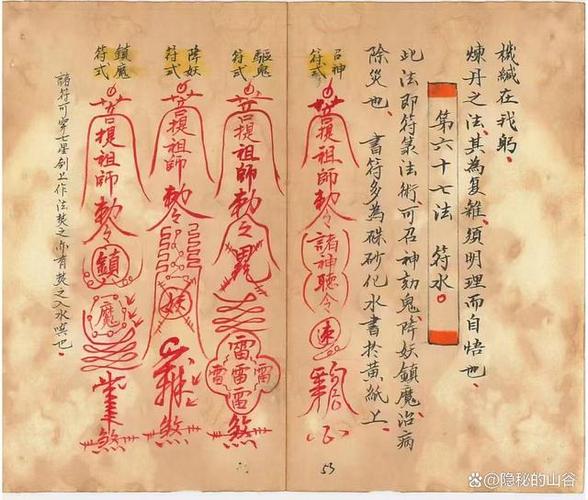 機緘在我躬、
煉丹之法、其為复雜、須明理而自悟也、
第六十七法 符水。
此法即符箓法術、可召神劾鬼、降妖鎮魔、治病
除災也、書符多為硃砂化水書於黃紙上、
召神
符式
菩提祖師勅令
諸神聽令
速
53
驅鬼
符式
菩提祖師勅令
鬼
雷雷雷雷雷
煞
降妖
符式
菩提祖師勅令
妖
煞
鎮魔
符式
菩提祖師勅令
鎮
魔
煞
諸符可穿七星劍上作法焚之亦有焚之入水噀也、
@隐秘的山谷